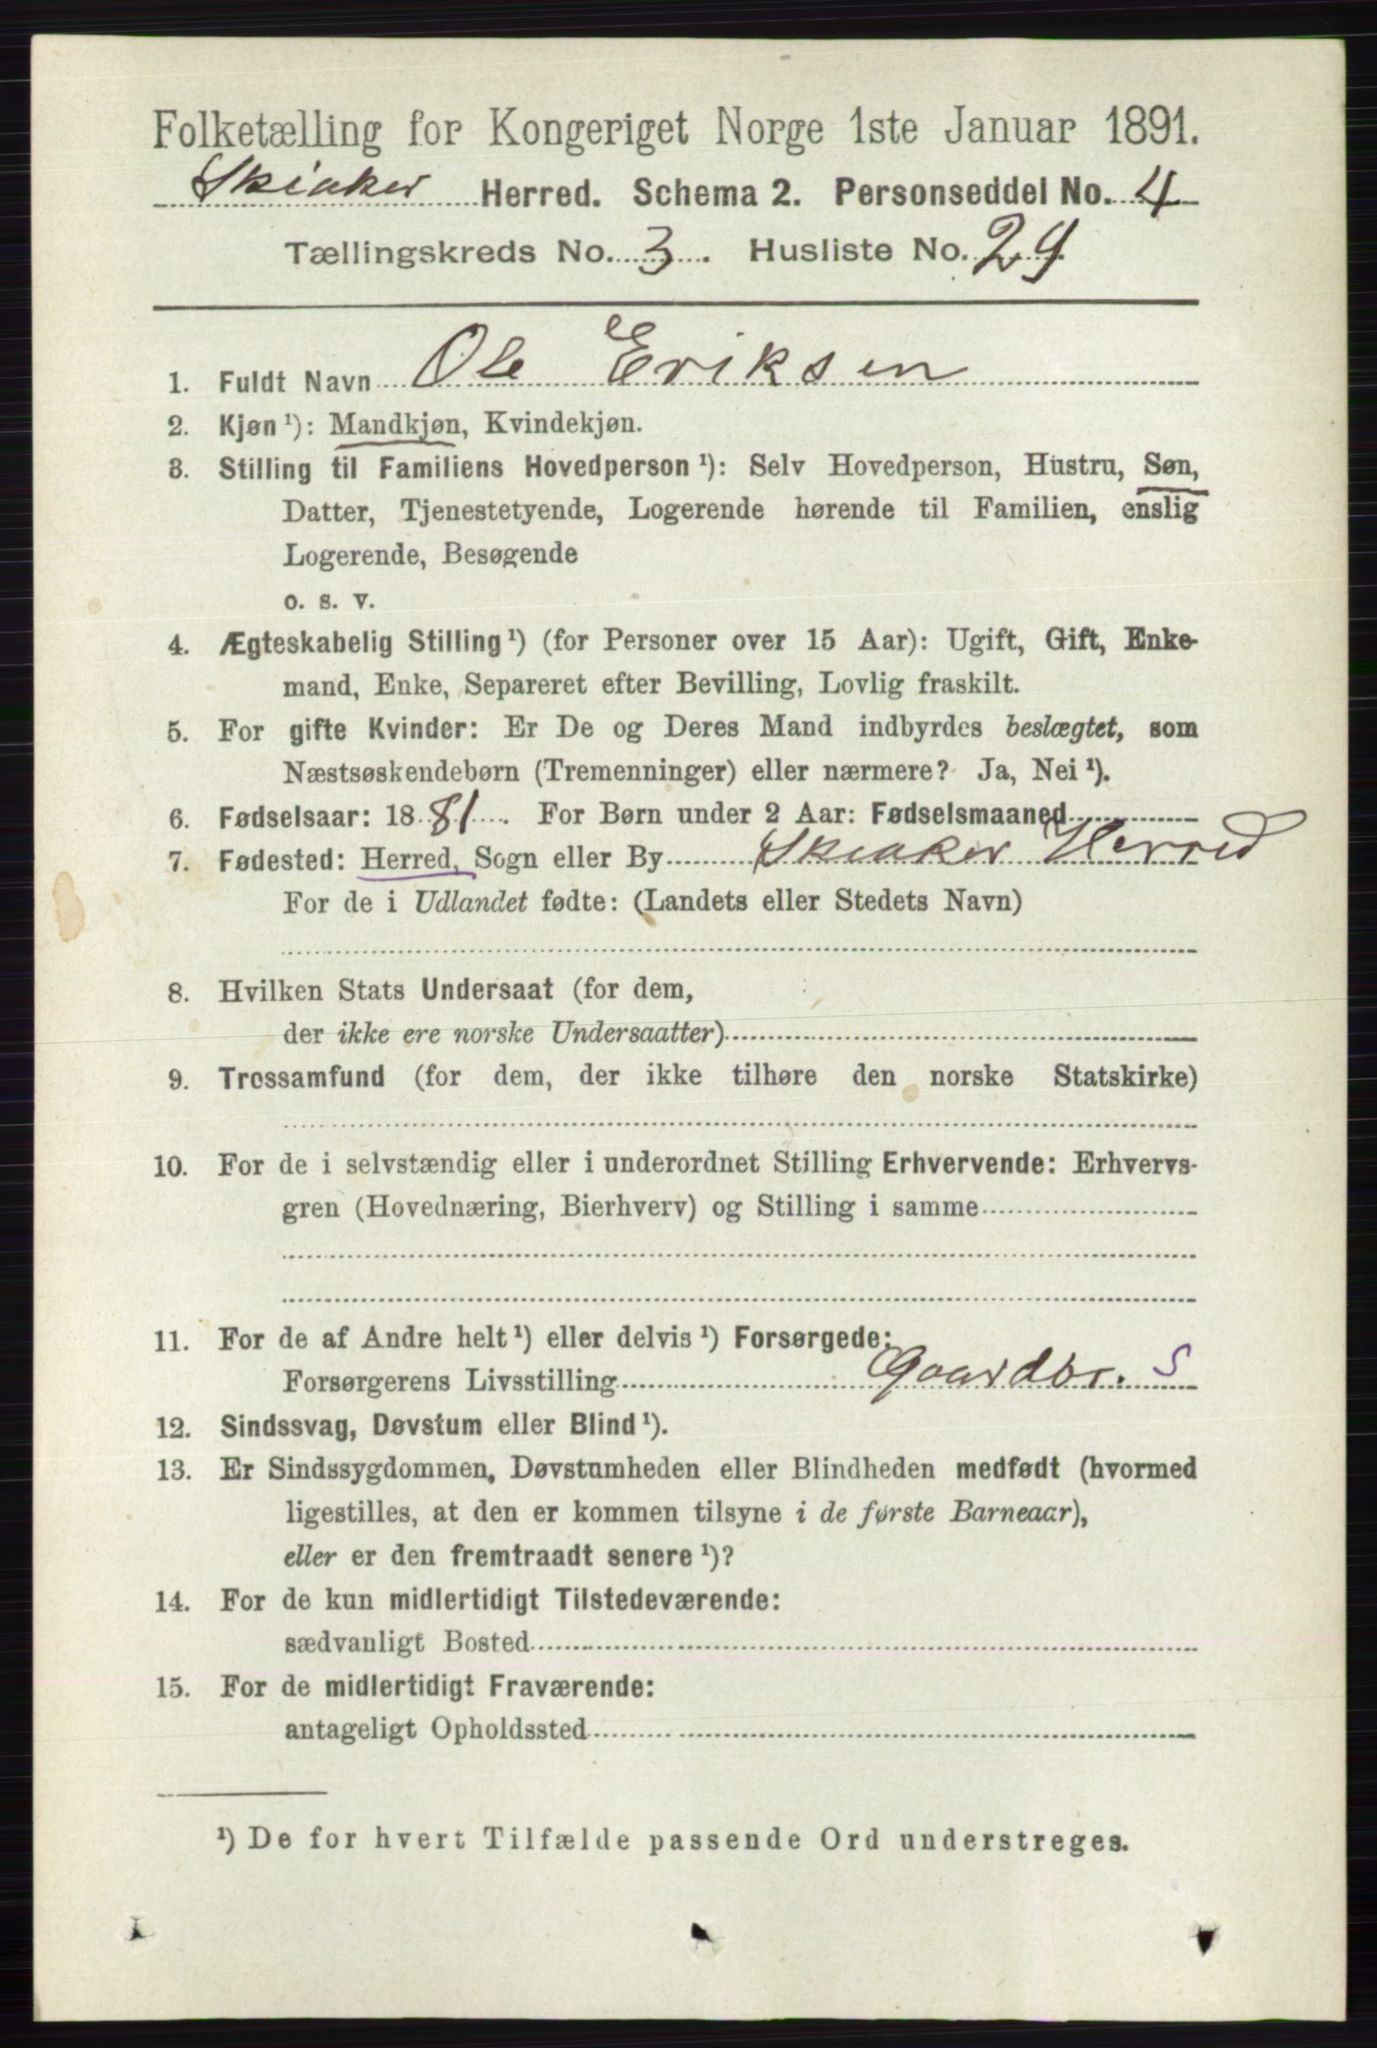 Folketælling for Kongeriget Norge 1ste Januar 1891.
Skiaker Herred. Schema 2. Personseddel No. 4
Tællingskreds No. 3. Husliste No. 29.
1. Fuldt Navn Ole Eriksen
2. Kjøn¹): Mandkjøn, Kvindekjøn.
3. Stilling til Familiens Hovedperson¹): Selv Hovedperson, Hustru, Søn,
Datter, Tjenestetyende, Logerende hørende til Familien, enslig
Logerende, Besøgende
o. s. v.
4. Ægteskabelig Stilling¹) (for Personer over 15 Aar): Ugift, Gift, Enke-
mand, Enke, Separeret efter Bevilling, Lovlig fraskilt.
5. For gifte Kvinder: Er De og Deres Mand indbyrdes beslægtet, som
Næstsøskendebørn (Tremenninger) eller nærmere? Ja, Nei¹).
6. Fødselsaar: 1881. For Børn under 2 Aar: Fødselsmaaned
7. Fødested: Herred, Sogn eller By Skiaker Herred
For de i Udlandet fødte: (Landets eller Stedets Navn)
8. Hvilken Stats Undersaat (for dem,
der ikke ere norske Undersaatter)
9. Trossamfund (for dem, der ikke tilhøre den norske Statskirke)
10. For de i selvstændig eller i underordnet Stilling Erhvervende: Erhvervs-
gren (Hovednæring, Bierhverv) og Stilling i samme
11. For de af Andre helt¹) eller delvis¹) Forsørgede:
Forsørgerens Livsstilling Gaardbr. S
12. Sindssvag, Døvstum eller Blind¹).
13. Er Sindssygdommen, Døvstumheden eller Blindheden medfødt (hvormed
ligestilles, at den er kommen tilsyne i de første Barneaar),
eller er den fremtraadt senere¹)?
14. For de kun midlertidigt Tilstedeværende:
sædvanligt Bosted
15. For de midlertidigt Fraværende:
antageligt Opholdssted
¹) De for hvert Tilfælde passende Ord understreges.